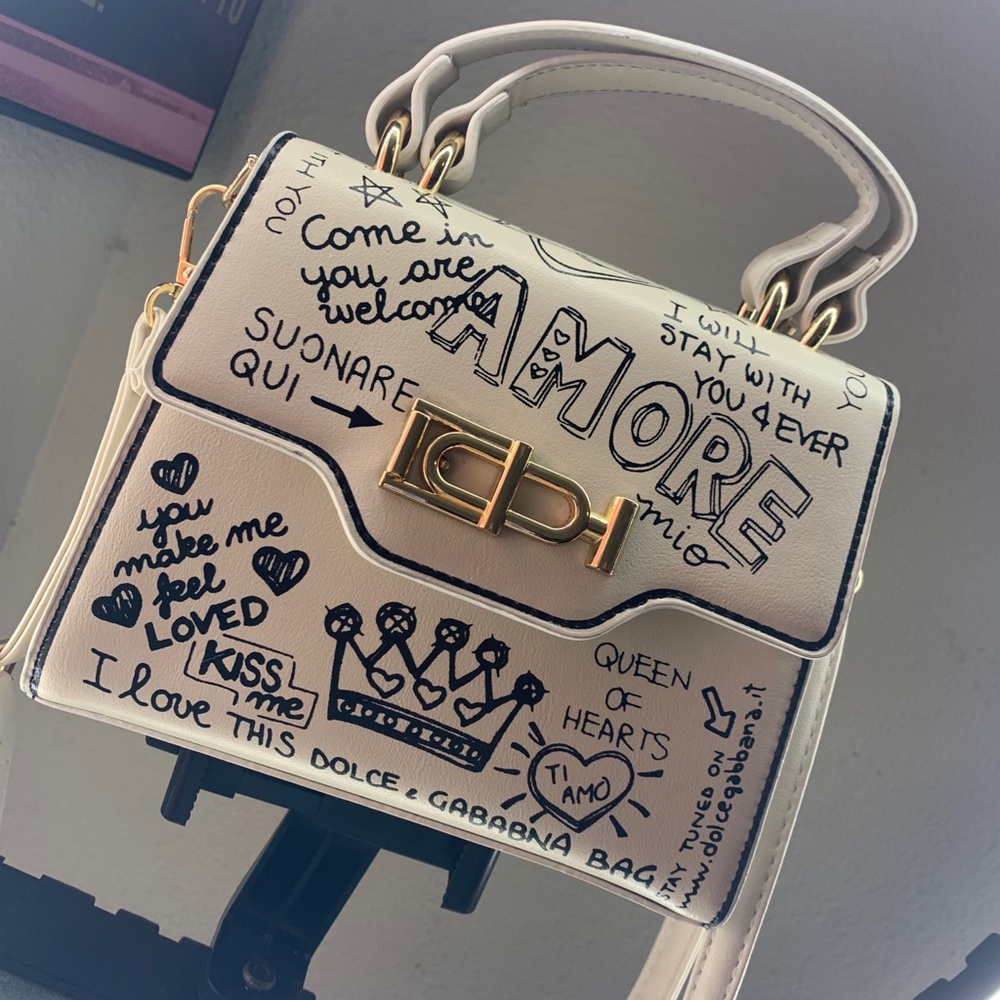 TH YOU
Come in
you are
welcome
SUONARE
QUI
AMORE
mio
I WILL
STAY WITH
YOU 4EVER
YOU
you
make me
feel
LOVED
KISS
me
I love THIS DOLCE & GABABNA BAG
QUEEN
OF
HEARTS
TI
AMO
STAY TUNED ON
www.dolcegabbana.it